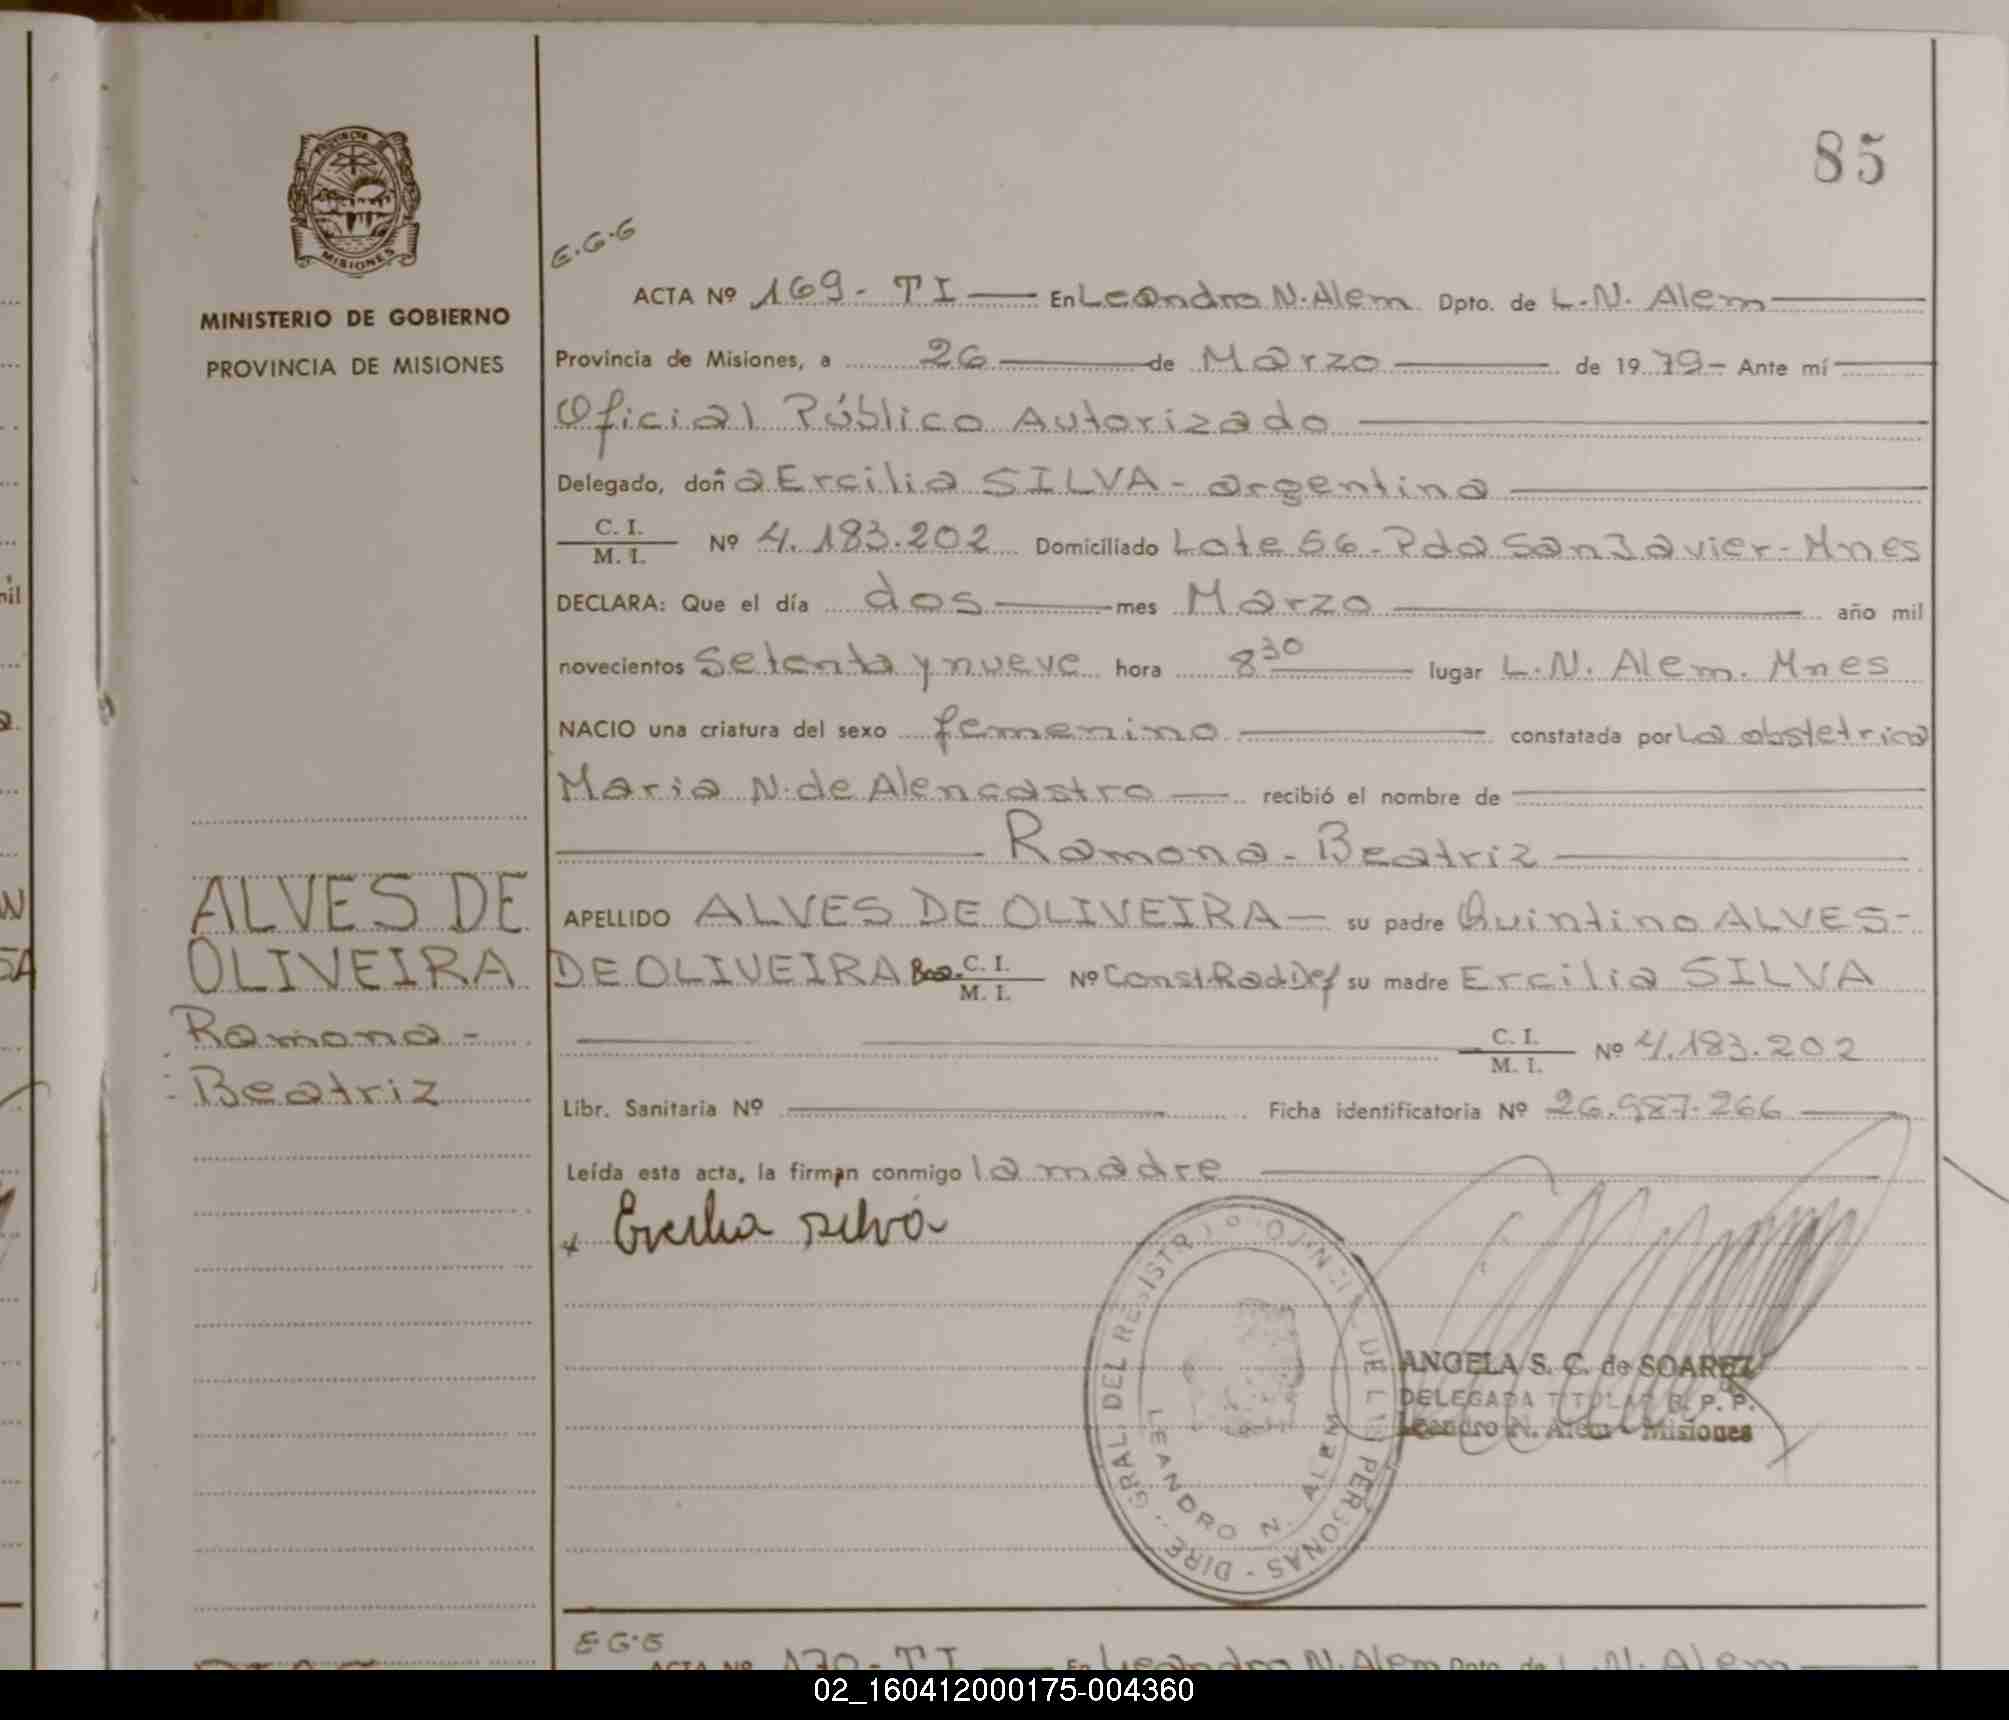 85
PROVINCIA DE
MISIONES
MINISTERIO DE GOBIERNO
PROVINCIA DE MISIONES
E.G.G
ACTA Nº 169- TI En Leandro N. Alem Dpto. de L.N. Alem
Provincia de Misiones, a 26 de Marzo de 1979- Ante mí
Oficial Público Autorizado
Delegado, doña Ercilia SILVA - argentina
C. I.
M. I. Nº 4.183.202 Domiciliado Lote 56- Pda San Javier- Mnes
DECLARA: Que el día dos mes Marzo año mil
novecientos Setenta y nueve hora 8 30 lugar L.N. Alem. Mnes
NACIO una criatura del sexo femenino constatada por La obstetrica
Maria N. de Alencastro recibió el nombre de
Ramona - Beatriz
APELLIDO ALVES DE OLIVEIRA — su padre Quintino ALVES-
DE OLIVEIRA C. I.
M. I. Nº Const.Rad.Def su madre Ercilia SILVA
C. I.
M. I. Nº 4.183.202
Libr. Sanitaria Nº Ficha identificatoria Nº 26.987.266
Leída esta acta, la firman conmigo la madre
x Ercilia Silva
ALVES DE
OLIVEIRA
Ramona -
Beatriz
DIRE. GRAL. DEL REGISTRO DE LAS PERSONAS
LEANDRO N. ALEM
ANGELA S. C. de SOAREZ
DELEGADA TITULAR R. P. P.
Leandro N. Alem - Misiones
E G.G
ACTA Nº 170- TI En Leandro N. Alem Dpto. de L.N. Alem
02_160412000175-004360